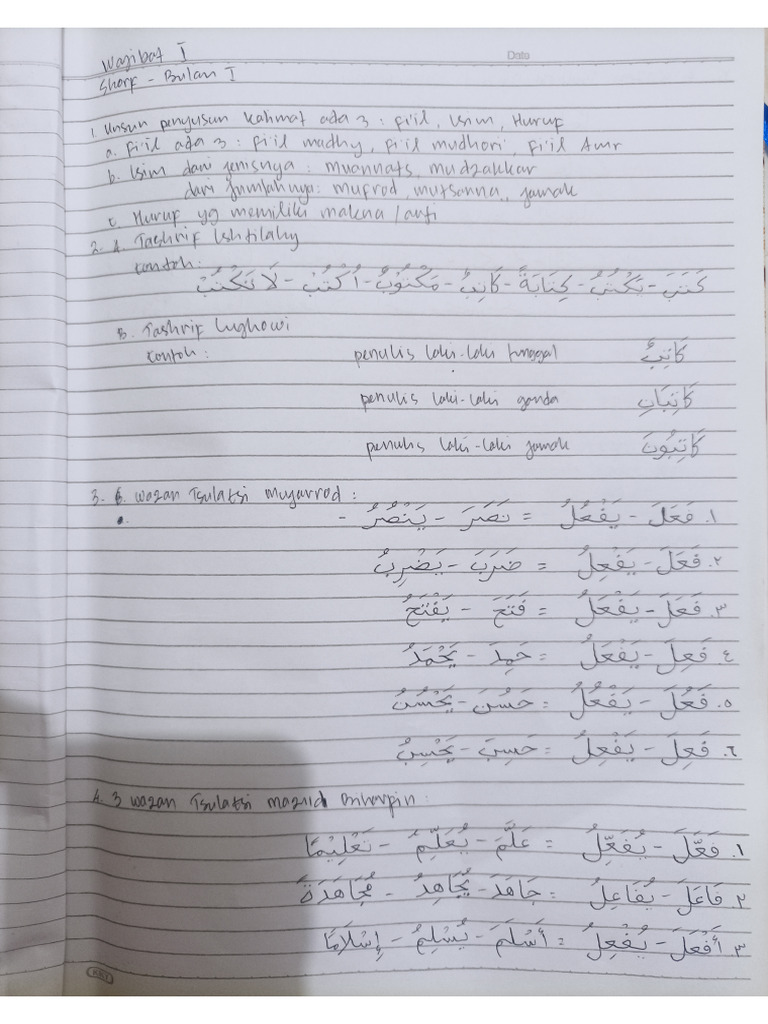 Wajibat I
Date
Shorf - Bulan I
1. Unsur penyusun kalimat ada 3 : fi'il, Isim, Huruf
a. fi'il ada 3 : fi'il madhy, fi'il mudhori, fi'il Amr
b. Isim dari jenisnya : muannats, mudzakkar
dari jumlahnya : mufrod, mutsanna, jamak
c. Huruf yg memiliki makna / arti
2. A. Tashrif Ishtilahy
contoh :
كَتَبَ - يَكْتُبُ - كِتَابَةً - كَاتِبٌ - مَكْتُوبٌ - اُكْتُبْ - لَا تَكْتُبْ
B. Tashrif lughowi
contoh : penulis laki-laki tunggal كَاتِبٌ
penulis laki-laki ganda كَاتِبَانِ
penulis laki-laki jamak كَاتِبُونَ
3. 6. wazan Tsulatsi mujarrod :
١. فَعَلَ - يَفْعُلُ = نَصَرَ - يَنْصُرُ -
٢. فَعَلَ - يَفْعِلُ = ضَرَبَ - يَضْرِبُ
٣. فَعَلَ - يَفْعَلُ = فَتَحَ - يَفْتَحُ
٤. فَعِلَ - يَفْعَلُ = حَمِدَ - يَحْمَدُ
٥. فَعُلَ - يَفْعُلُ = حَسُنَ - يَحْسُنُ
٦. فَعِلَ - يَفْعِلُ = حَسِبَ - يَحْسِبُ
4. 3 wazan Tsulatsi maziid biharfin :
١. فَعَّلَ - يُفَعِّلُ = عَلَّمَ - يُعَلِّمُ - تَعْلِيْمًا
٢. فَاعَلَ - يُفَاعِلُ = جَاهَدَ - يُجَاهِدُ - مُجَاهَدَةً
٣. أَفْعَلَ - يُفْعِلُ = أَسْلَمَ - يُسْلِمُ - إِسْلَامًا